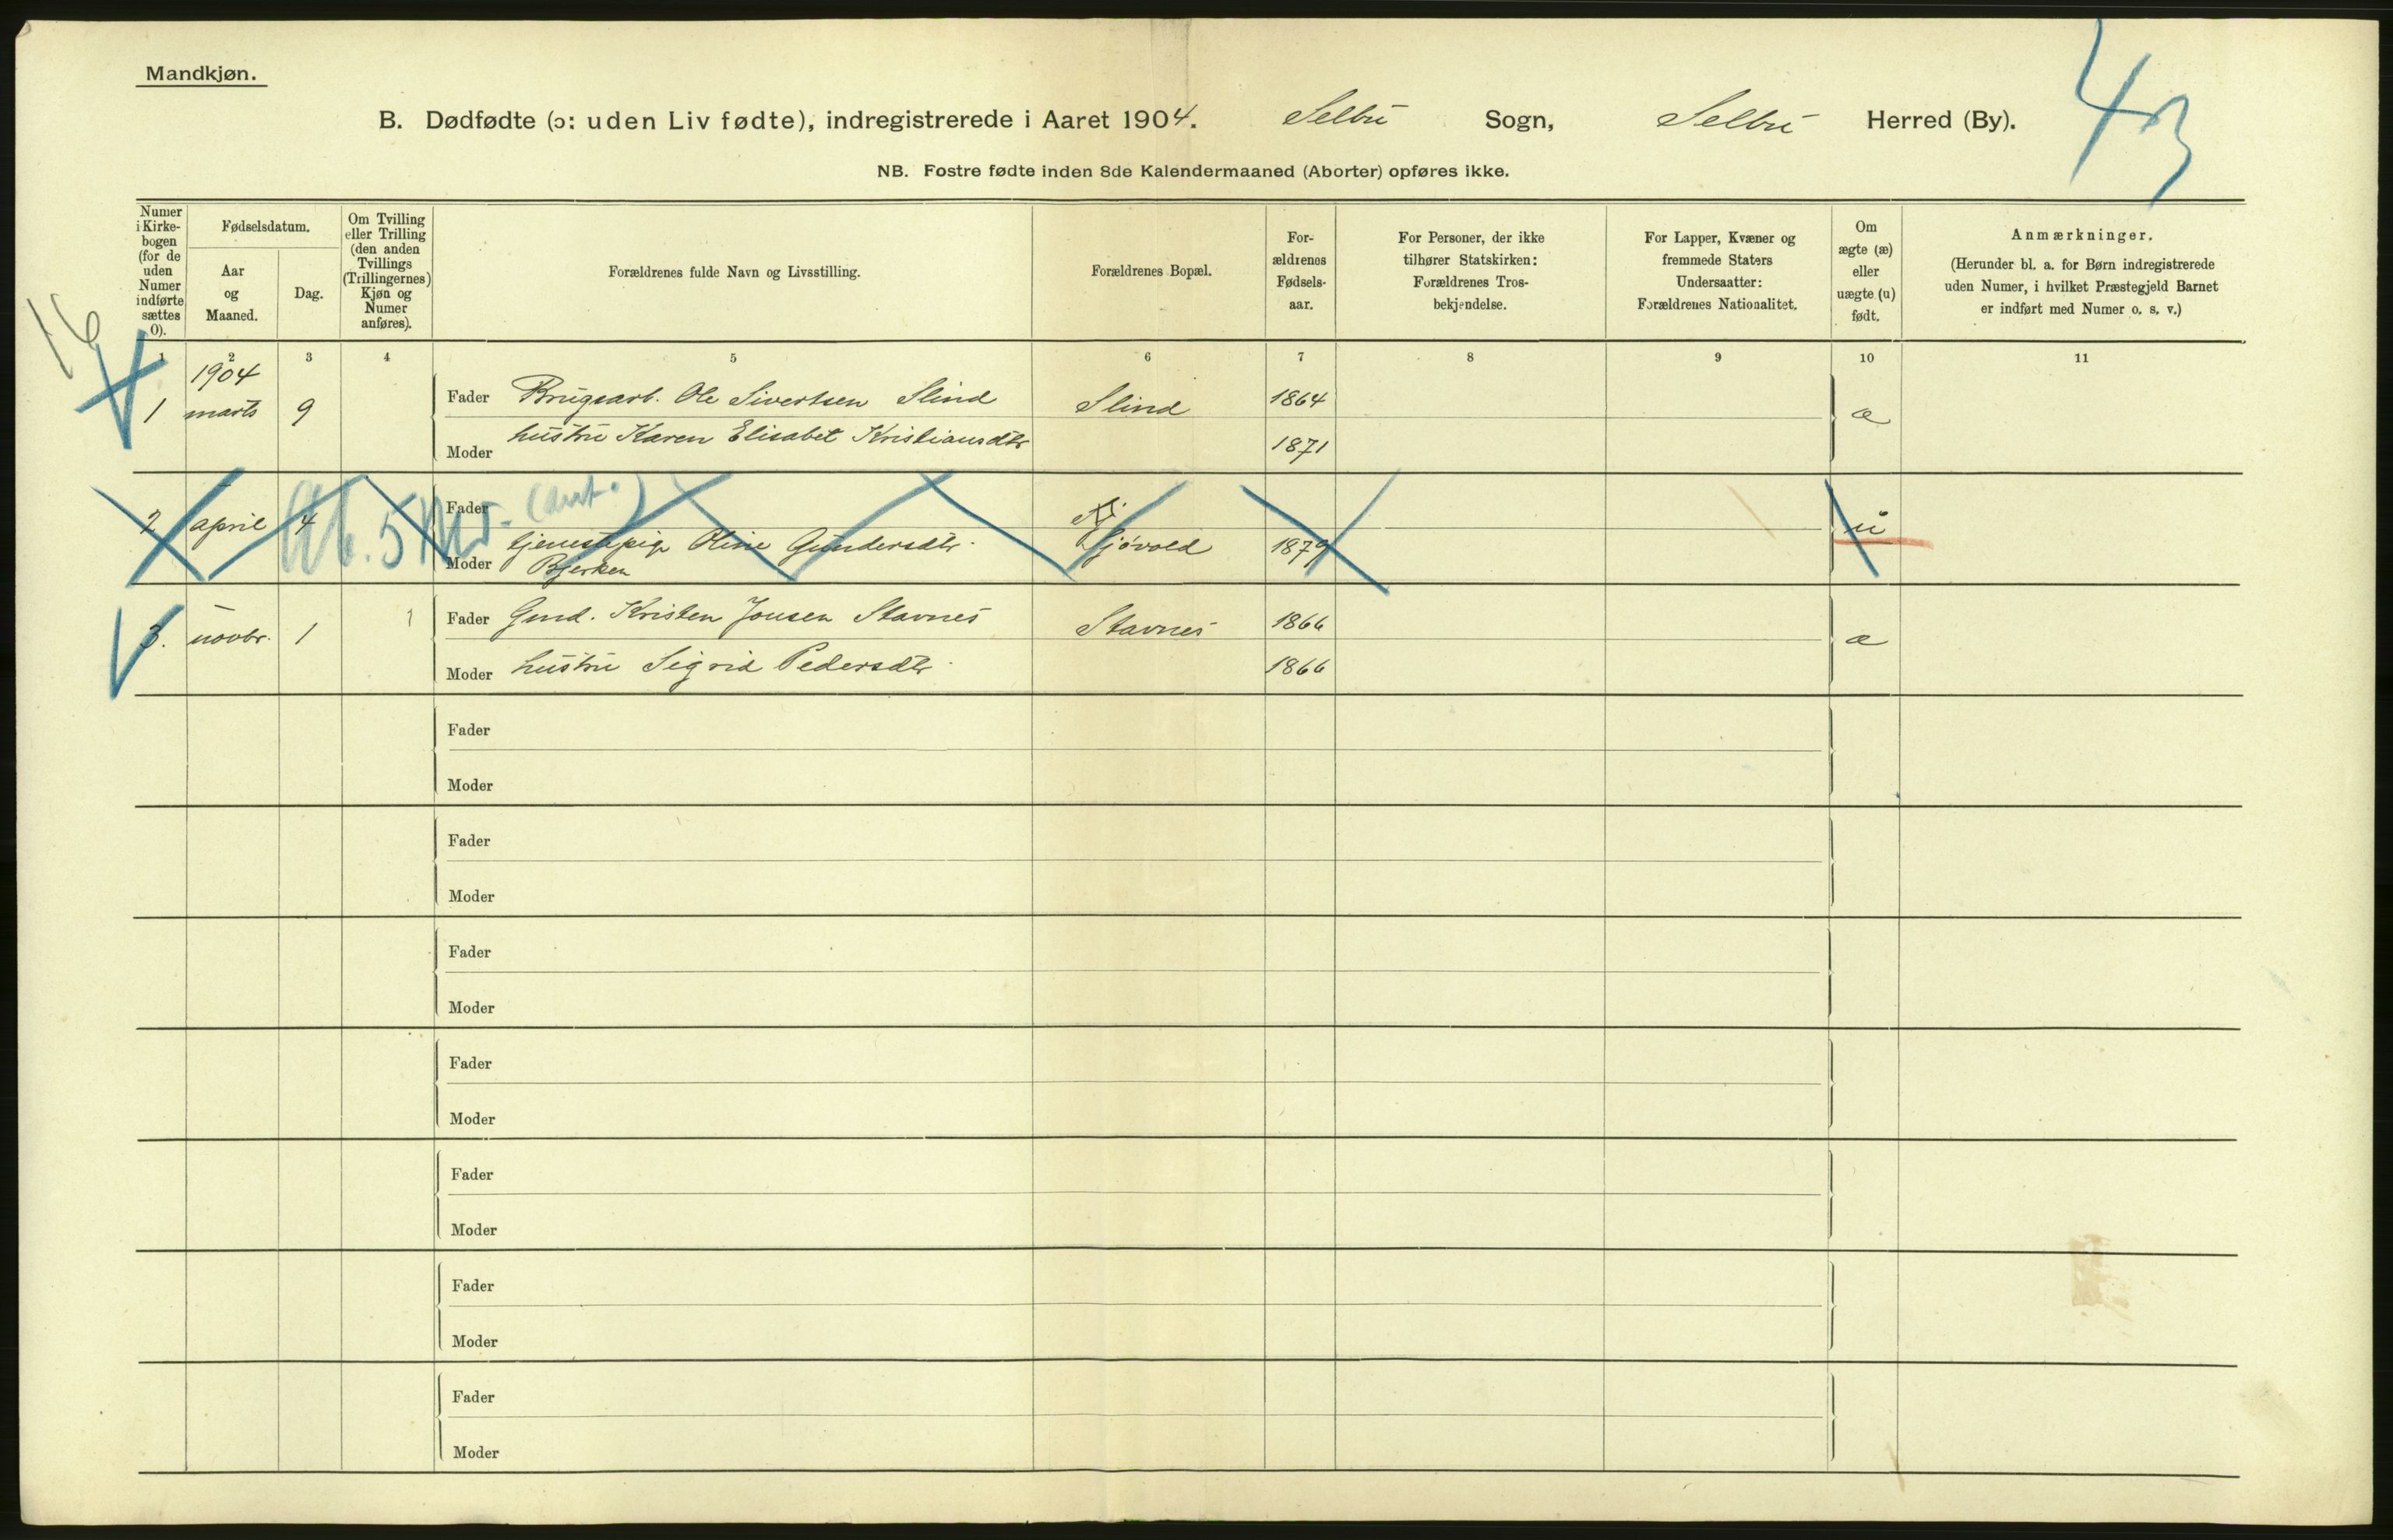 Mandkjøn.
B. Dødfødte (ɔ: uden Liv fødte), indregistrerede i Aaret 1904. Selbu Sogn, Selbu Herred (By).
43
NB. Fostre fødte inden 8de Kalendermaaned (Aborter) opføres ikke.
Numer i Kirkebogen (for de uden Numer indførte sættes 0).
Fødselsdatum.
Aar og Maaned.
Dag.
Om Tvilling eller Trilling (den anden Tvillings (Trillingernes) Kjøn og Numer anføres).
Forældrenes fulde Navn og Livsstilling.
Forældrenes Bopæl.
Forældrenes Fødselsaar.
For Personer, der ikke tilhører Statskirken: Forældrenes Trosbekjendelse.
For Lapper, Kvæner og fremmede Staters Undersaatter: Forældrenes Nationalitet.
Om ægte (æ) eller uægte (u) født.
Anmærkninger.
(Herunder bl. a. for Børn indregistrerede uden Numer, i hvilket Præstegjeld Barnet er indført med Numer o. s. v.)
1 2 3 4 5 6 7 8 9 10 11
16
1904
1 marts 9 Fader Brugsarb. Ole Sivertsen Slind Slind 1864 æ
Moder hustru Karen Elisabet Kristiansdtr 1871
2 april 4 Ab. 5 Md. Fader
Moder tjenestepige Oline Gundersdtr. Bjerken 1879 u
3. novbr. 1 1 Fader Gmd. Kristen Jonsen Stavnes Stavnes 1866 æ
Moder hustru Sigrid Pedersdtr. 1866
Fader
Moder
Fader
Moder
Fader
Moder
Fader
Moder
Fader
Moder
Fader
Moder
Fader
Moder